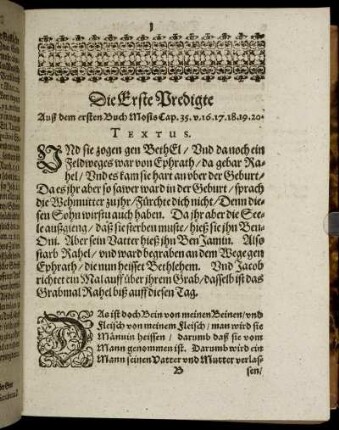 1
Die Erste Predigte
Auß dem ersten Buch Mosis Cap. 35. v. 16. 17. 18. 19. 20.
TEXTUS.
VNd sie zogen gen BethEl / Vnd da noch ein
Feldweges war von Ephrath / da gebar Ra-
hel / Vnd es kam sie hart an vber der Geburt /
Da es jhr aber so sawer ward in der Geburt / sprach
die Wehmutter zu jhr / Fürchte dich nicht / Denn die-
sen Sohn wirstu auch haben. Da jhr aber die See-
le außgieng / daß sie sterben muste / hieß sie jhn Ben-
Oni. Aber sein Vatter hieß jhn BenJamin. Also
starb Rahel / vnd ward begraben an dem Wege gen
Ephrath / die nun heisset Bethlehem. Vnd Jacob
richtet ein Mal auff über jhrem Grab / dasselb ist das
Grabmal Rahel biß auff diesen Tag.
DAs ist doch Bein von meinen Beinen / vnd
Fleisch von meinem Fleisch / man wird sie
Männin heissen / darumb daß sie vom
Mann genommen ist. Darumb wird ein
Mann seinen Vatter vnd Mutter verlas-
B
sen /